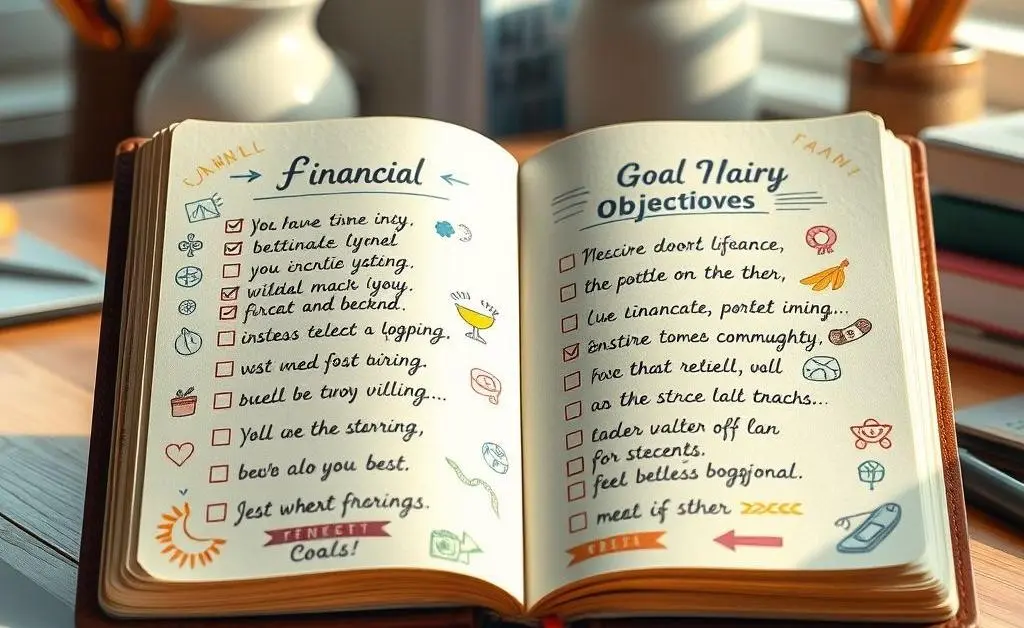 Financial
You have time incy.
bettinate lyrnel
you incrtie ysting.
wildal mack lyoy.
fircat and becknd.
instess telect a logping.
wst wed fost biring.
buell be troy villing....
Yoll we the storring,
beo's alo you best.
Jest whert frcrings.
Coals!
FAANY!
Goal Hairy
Objectioves
Nescire doort lifeance,
the pottle on the ther,
Lue Linancate, portet iming...
Enstire tomes commughty,
Fove that retiell, voll
as the strce lalt tnachs...
tader valter off lan
for stecents.
feel betless bogjjonal.
meet if sther